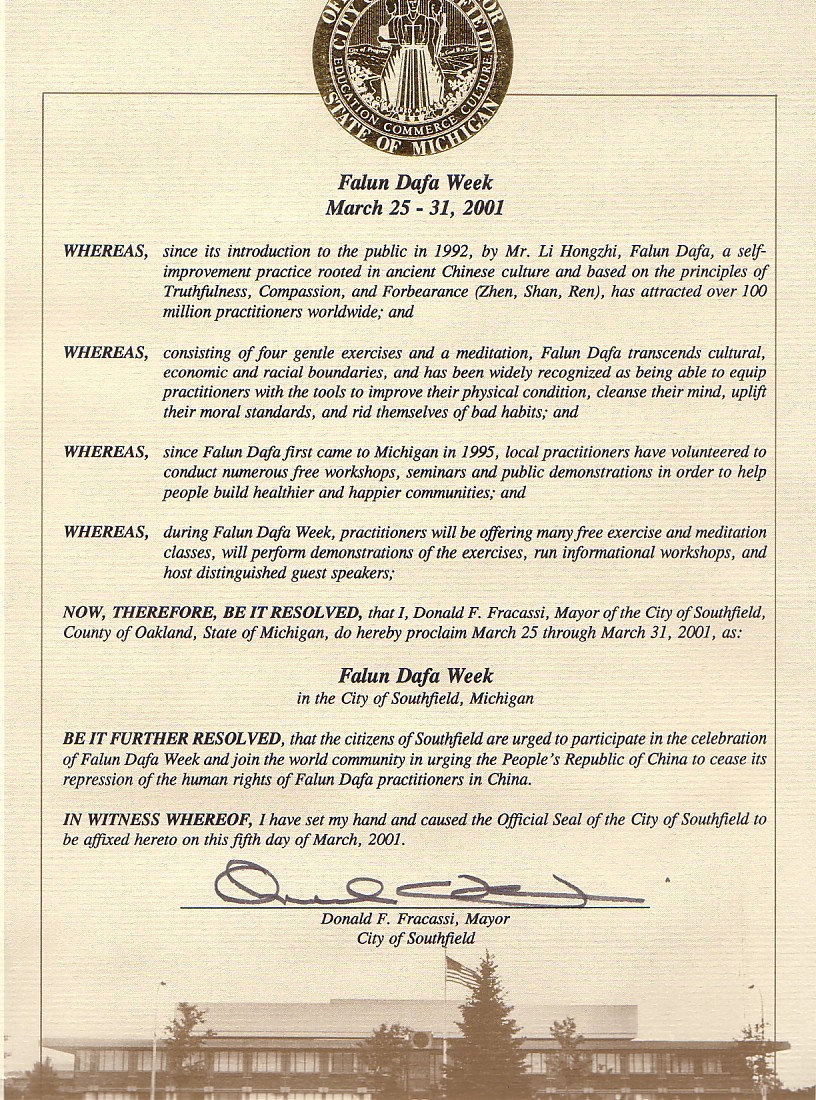 CITY
FIELD
EDUCATION COMMERCE CULTURE
STATE OF MICHIGAN
Falun Dafa Week
March 25 - 31, 2001
WHEREAS, since its introduction to the public in 1992, by Mr. Li Hongzhi, Falun Dafa, a self-
improvement practice rooted in ancient Chinese culture and based on the principles of
Truthfulness, Compassion, and Forbearance (Zhen, Shan, Ren), has attracted over 100
million practitioners worldwide; and
WHEREAS, consisting of four gentle exercises and a meditation, Falun Dafa transcends cultural,
economic and racial boundaries, and has been widely recognized as being able to equip
practitioners with the tools to improve their physical condition, cleanse their mind, uplift
their moral standards, and rid themselves of bad habits; and
WHEREAS, since Falun Dafa first came to Michigan in 1995, local practitioners have volunteered to
conduct numerous free workshops, seminars and public demonstrations in order to help
people build healthier and happier communities; and
WHEREAS, during Falun Dafa Week, practitioners will be offering many free exercise and meditation
classes, will perform demonstrations of the exercises, run informational workshops, and
host distinguished guest speakers;
NOW, THEREFORE, BE IT RESOLVED, that I, Donald F. Fracassi, Mayor of the City of Southfield,
County of Oakland, State of Michigan, do hereby proclaim March 25 through March 31, 2001, as:
Falun Dafa Week
in the City of Southfield, Michigan
BE IT FURTHER RESOLVED, that the citizens of Southfield are urged to participate in the celebration
of Falun Dafa Week and join the world community in urging the People's Republic of China to cease its
repression of the human rights of Falun Dafa practitioners in China.
IN WITNESS WHEREOF, I have set my hand and caused the Official Seal of the City of Southfield to
be affixed hereto on this fifth day of March, 2001.
Donald F. Fracassi, Mayor
City of Southfield